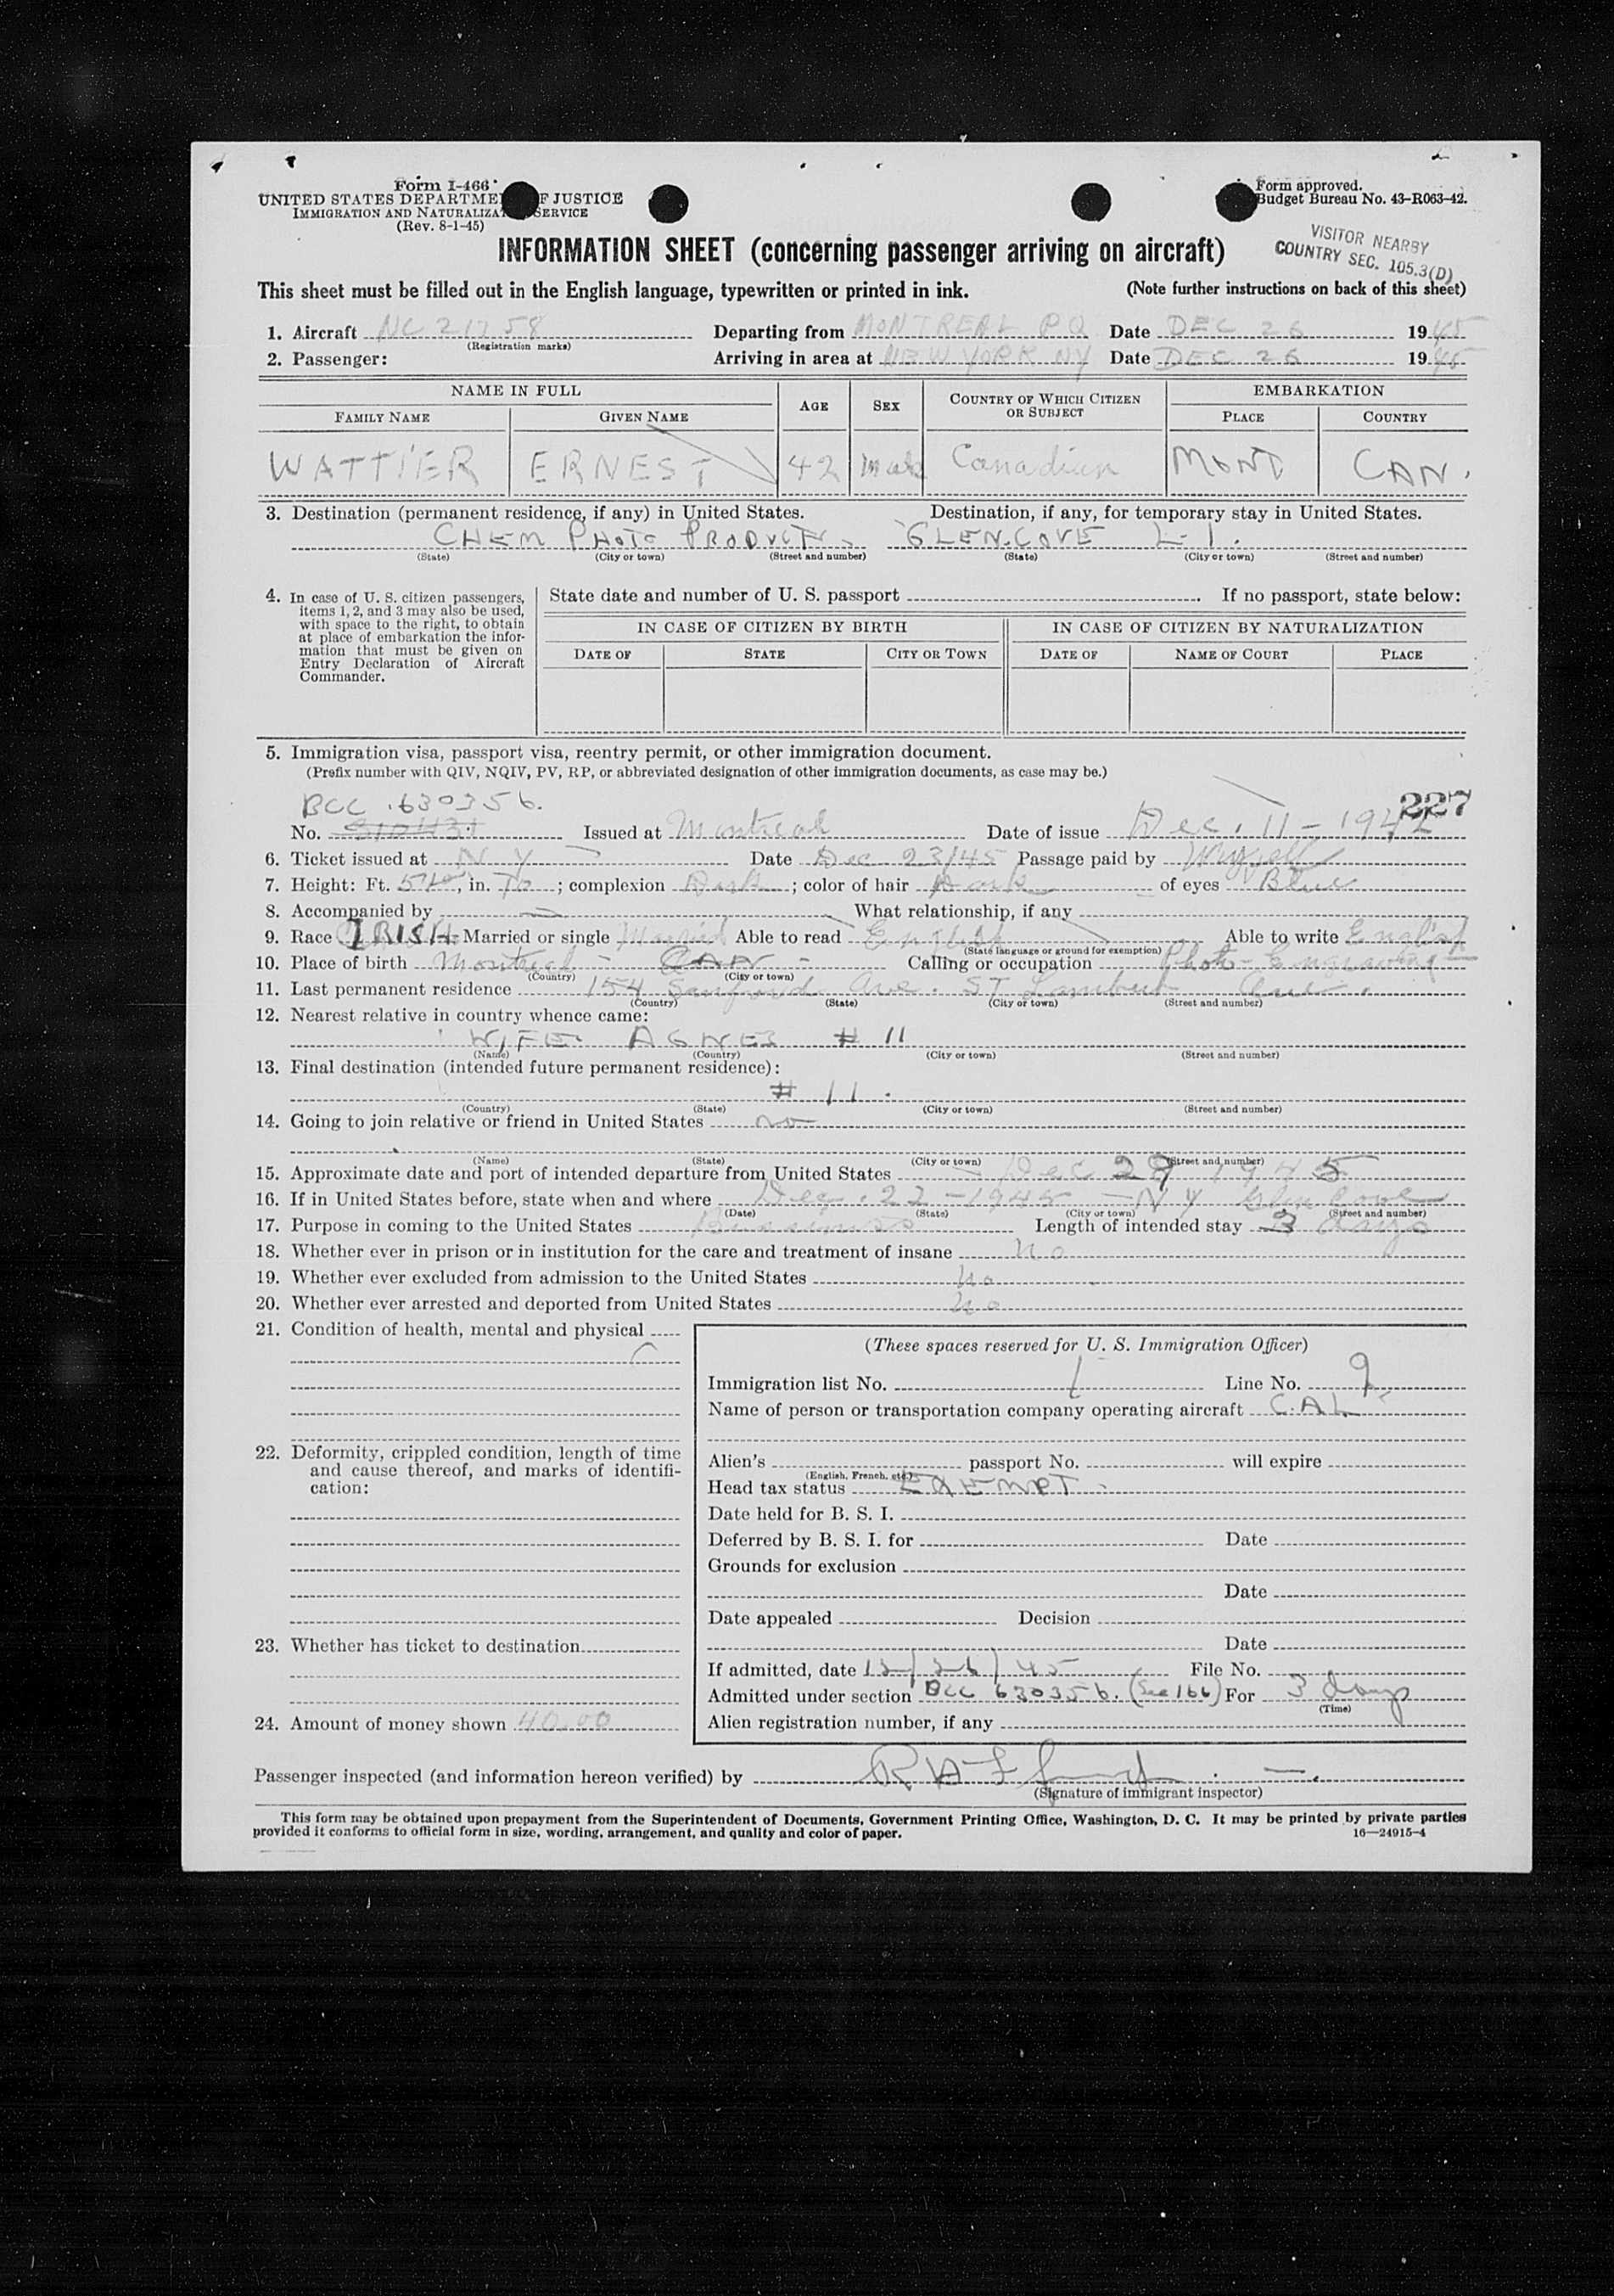 Form I-466
UNITED STATES DEPARTMENT OF JUSTICE
IMMIGRATION AND NATURALIZATION SERVICE
(Rev. 8-1-45)
Form approved.
Budget Bureau No. 43-R063-42.
INFORMATION SHEET (concerning passenger arriving on aircraft)
VISITOR NEARBY
COUNTRY SEC. 105.3(D)
This sheet must be filled out in the English language, typewritten or printed in ink. (Note further instructions on back of this sheet)
1. Aircraft NC 21758 Departing from MONTREAL PQ Date DEC 26 1945
(Registration marks)
2. Passenger: Arriving in area at NEW YORK NY Date DEC 26 1945
NAME IN FULL AGE SEX COUNTRY OF WHICH CITIZEN OR SUBJECT EMBARKATION
FAMILY NAME GIVEN NAME PLACE COUNTRY
WATTIER ERNEST 42 Male Canadian MONT CAN.
3. Destination (permanent residence, if any) in United States. Destination, if any, for temporary stay in United States.
CHEM PHOTO PRODUCTS GLEN COVE L.I.
(State) (City or town) (Street and number) (State) (City or town) (Street and number)
4. In case of U. S. citizen passengers, items 1, 2, and 3 may also be used, with space to the right, to obtain at place of embarkation the information that must be given on Entry Declaration of Aircraft Commander.
State date and number of U. S. passport If no passport, state below:
IN CASE OF CITIZEN BY BIRTH IN CASE OF CITIZEN BY NATURALIZATION
DATE OF STATE CITY OR TOWN DATE OF NAME OF COURT PLACE
5. Immigration visa, passport visa, reentry permit, or other immigration document.
(Prefix number with QIV, NQIV, PV, RP, or abbreviated designation of other immigration documents, as case may be.)
227
BCC 630356.
No. Issued at Montreal Date of issue Dec. 11 -
6. Ticket issued at N Y Date Dec 23/45 Passage paid by Myself
7. Height: Ft. , in. 10 ; complexion Dark ; color of hair Dark of eyes Blue
8. Accompanied by — What relationship, if any
9. Race IRISH Married or single Married Able to read English Able to write English
(State language or ground for exemption)
10. Place of birth Montreal - CAN - Calling or occupation Photo-Engraving
(Country) (City or town)
11. Last permanent residence 154 Sanford Ave. ST Lambert Que.
(Country) (State) (City or town) (Street and number)
12. Nearest relative in country whence came:
WIFE. AGNES # 11
(Name) (Country) (City or town) (Street and number)
13. Final destination (intended future permanent residence):
# 11.
(Country) (State) (City or town) (Street and number)
14. Going to join relative or friend in United States no
(Name) (State) (City or town) (Street and number)
15. Approximate date and port of intended departure from United States Dec 29 1945
16. If in United States before, state when and where Dec. 22 - 1945 - N Y Glen Cove
(Date) (State) (City or town) (Street and number)
17. Purpose in coming to the United States Business Length of intended stay 3 days
18. Whether ever in prison or in institution for the care and treatment of insane No
19. Whether ever excluded from admission to the United States No
20. Whether ever arrested and deported from United States No
21. Condition of health, mental and physical
(These spaces reserved for U. S. Immigration Officer)
Immigration list No. 1 Line No. 9
Name of person or transportation company operating aircraft C.A.L
22. Deformity, crippled condition, length of time and cause thereof, and marks of identification:
Alien's passport No. will expire
(English, French, etc.)
Head tax status EXEMPT
Date held for B. S. I.
Deferred by B. S. I. for Date
Grounds for exclusion
Date
Date appealed Decision
23. Whether has ticket to destination
Date
If admitted, date 12/26/45 File No.
Admitted under section BCC 630356. (Sec 166) For 3 days
(Time)
24. Amount of money shown 40.00
Alien registration number, if any
Passenger inspected (and information hereon verified) by
(Signature of immigrant inspector)
This form may be obtained upon prepayment from the Superintendent of Documents, Government Printing Office, Washington, D. C. It may be printed by private parties
provided it conforms to official form in size, wording, arrangement, and quality and color of paper. 16—24915-4